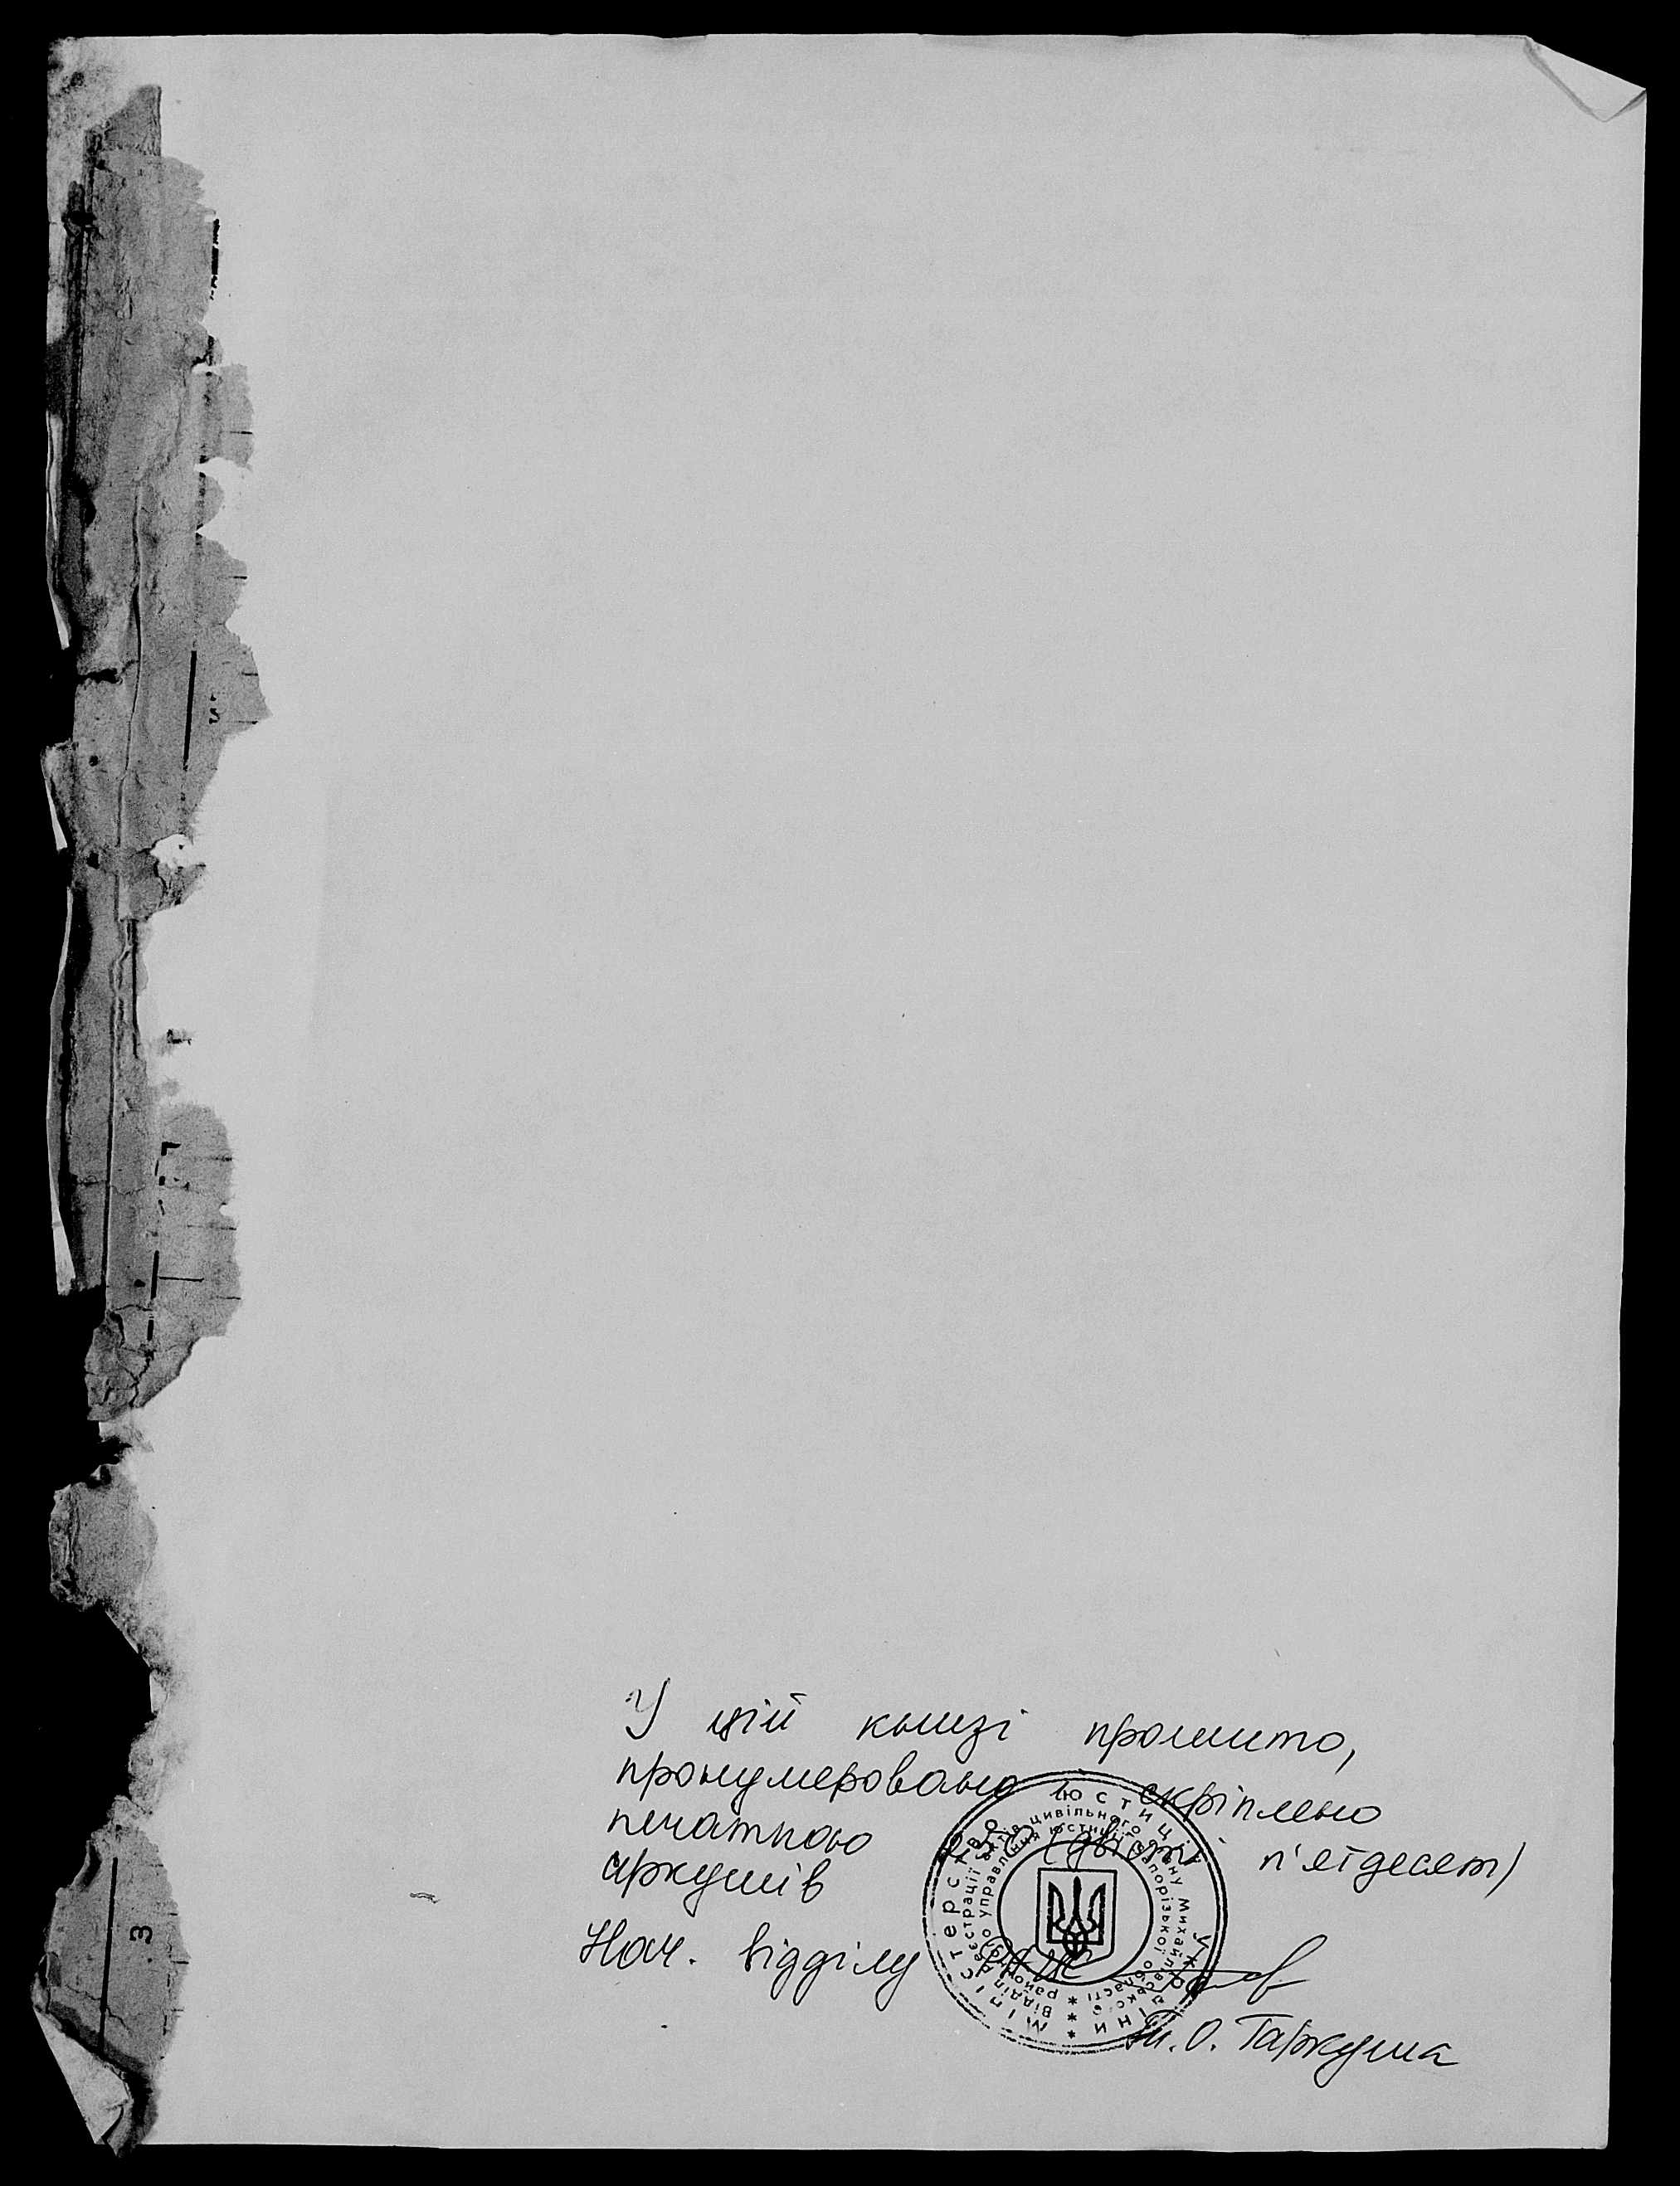 У цій книзі прошито,
пронумеровано і скріплено
печаткою 250 (двісті п'ятдесят)
аркушів
Нач. відділу
Т.О. Таркуша
Міністерство юстиції України
Відділ реєстрації актів цивільного стану Михайлівського
районного управління юстиції Запорізької області
3